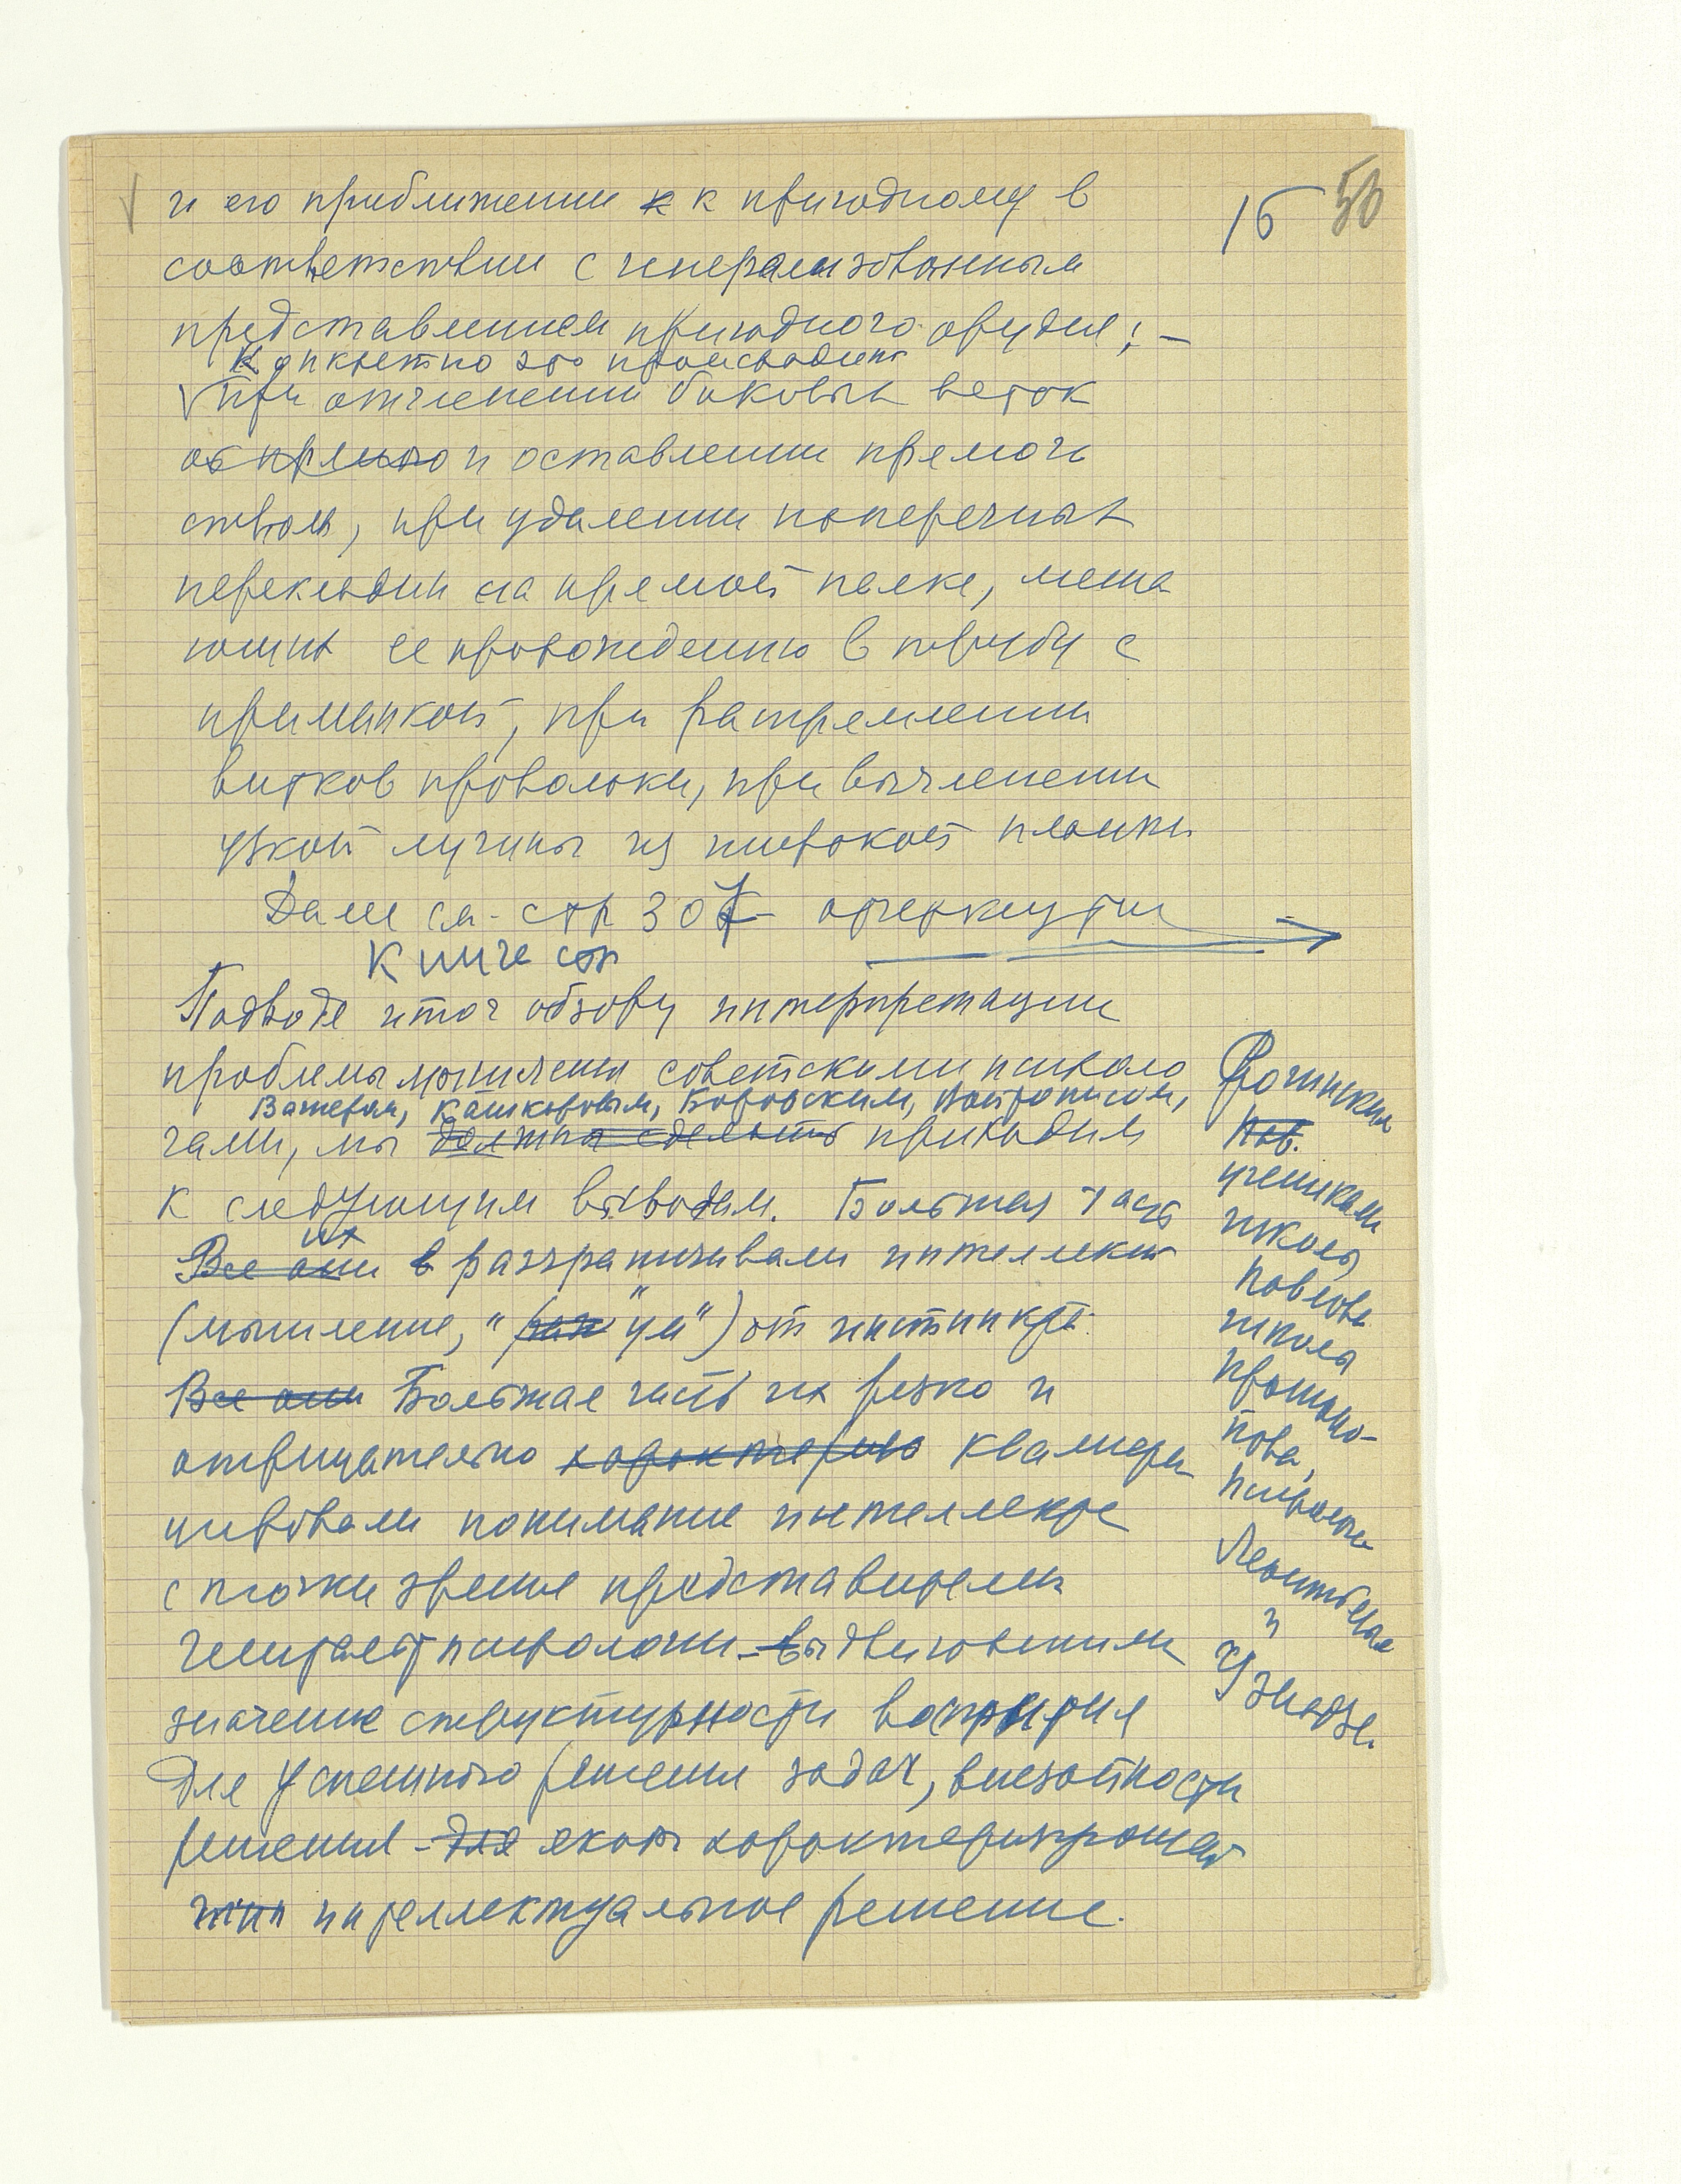 16 50
и его приближении к к пригодному в
соответствии с генерализованным
представлением пригодного орудия; –
Конкретно это происходит
при отчленении боковых веток
от прямого и оставлении прямого
ствола, при удалении поперечных
перекладин на прямой палке, меша
ющих ее прохождению в трубу с
приманкой, при распрямлении
витков проволоки, при вычленении
узкой лучины из широкой планки
Далее см. стр 307 отчеркнутое
К книге стр
Подводя итог обзору интерпретации
проблемы мышления советскими психоло
Вагнером, Кашкаровым, Боровским, Войтонисом,
гами, мы должны сделать приходим
к следующим выводам. Большая часть
их
Все они в разграничивали интеллект
(мышление, "ум") от инстинкта.
Все они Большая часть их резко и
отрицательно характерно квалифи
цировали понимание интеллекта
с точки зрения представителей
гештальтпсихологии – выдвигавшими
значение структурности восприятия
для успешного решения задач, внезапности
решения – для якобы характеризующей
тип интеллектуальное решение.
Рогинским
Пав.
учениками
школы
Павлова
школы
Протопо-
пова,
психологи
Леонтьевым
и
Узнадзе.